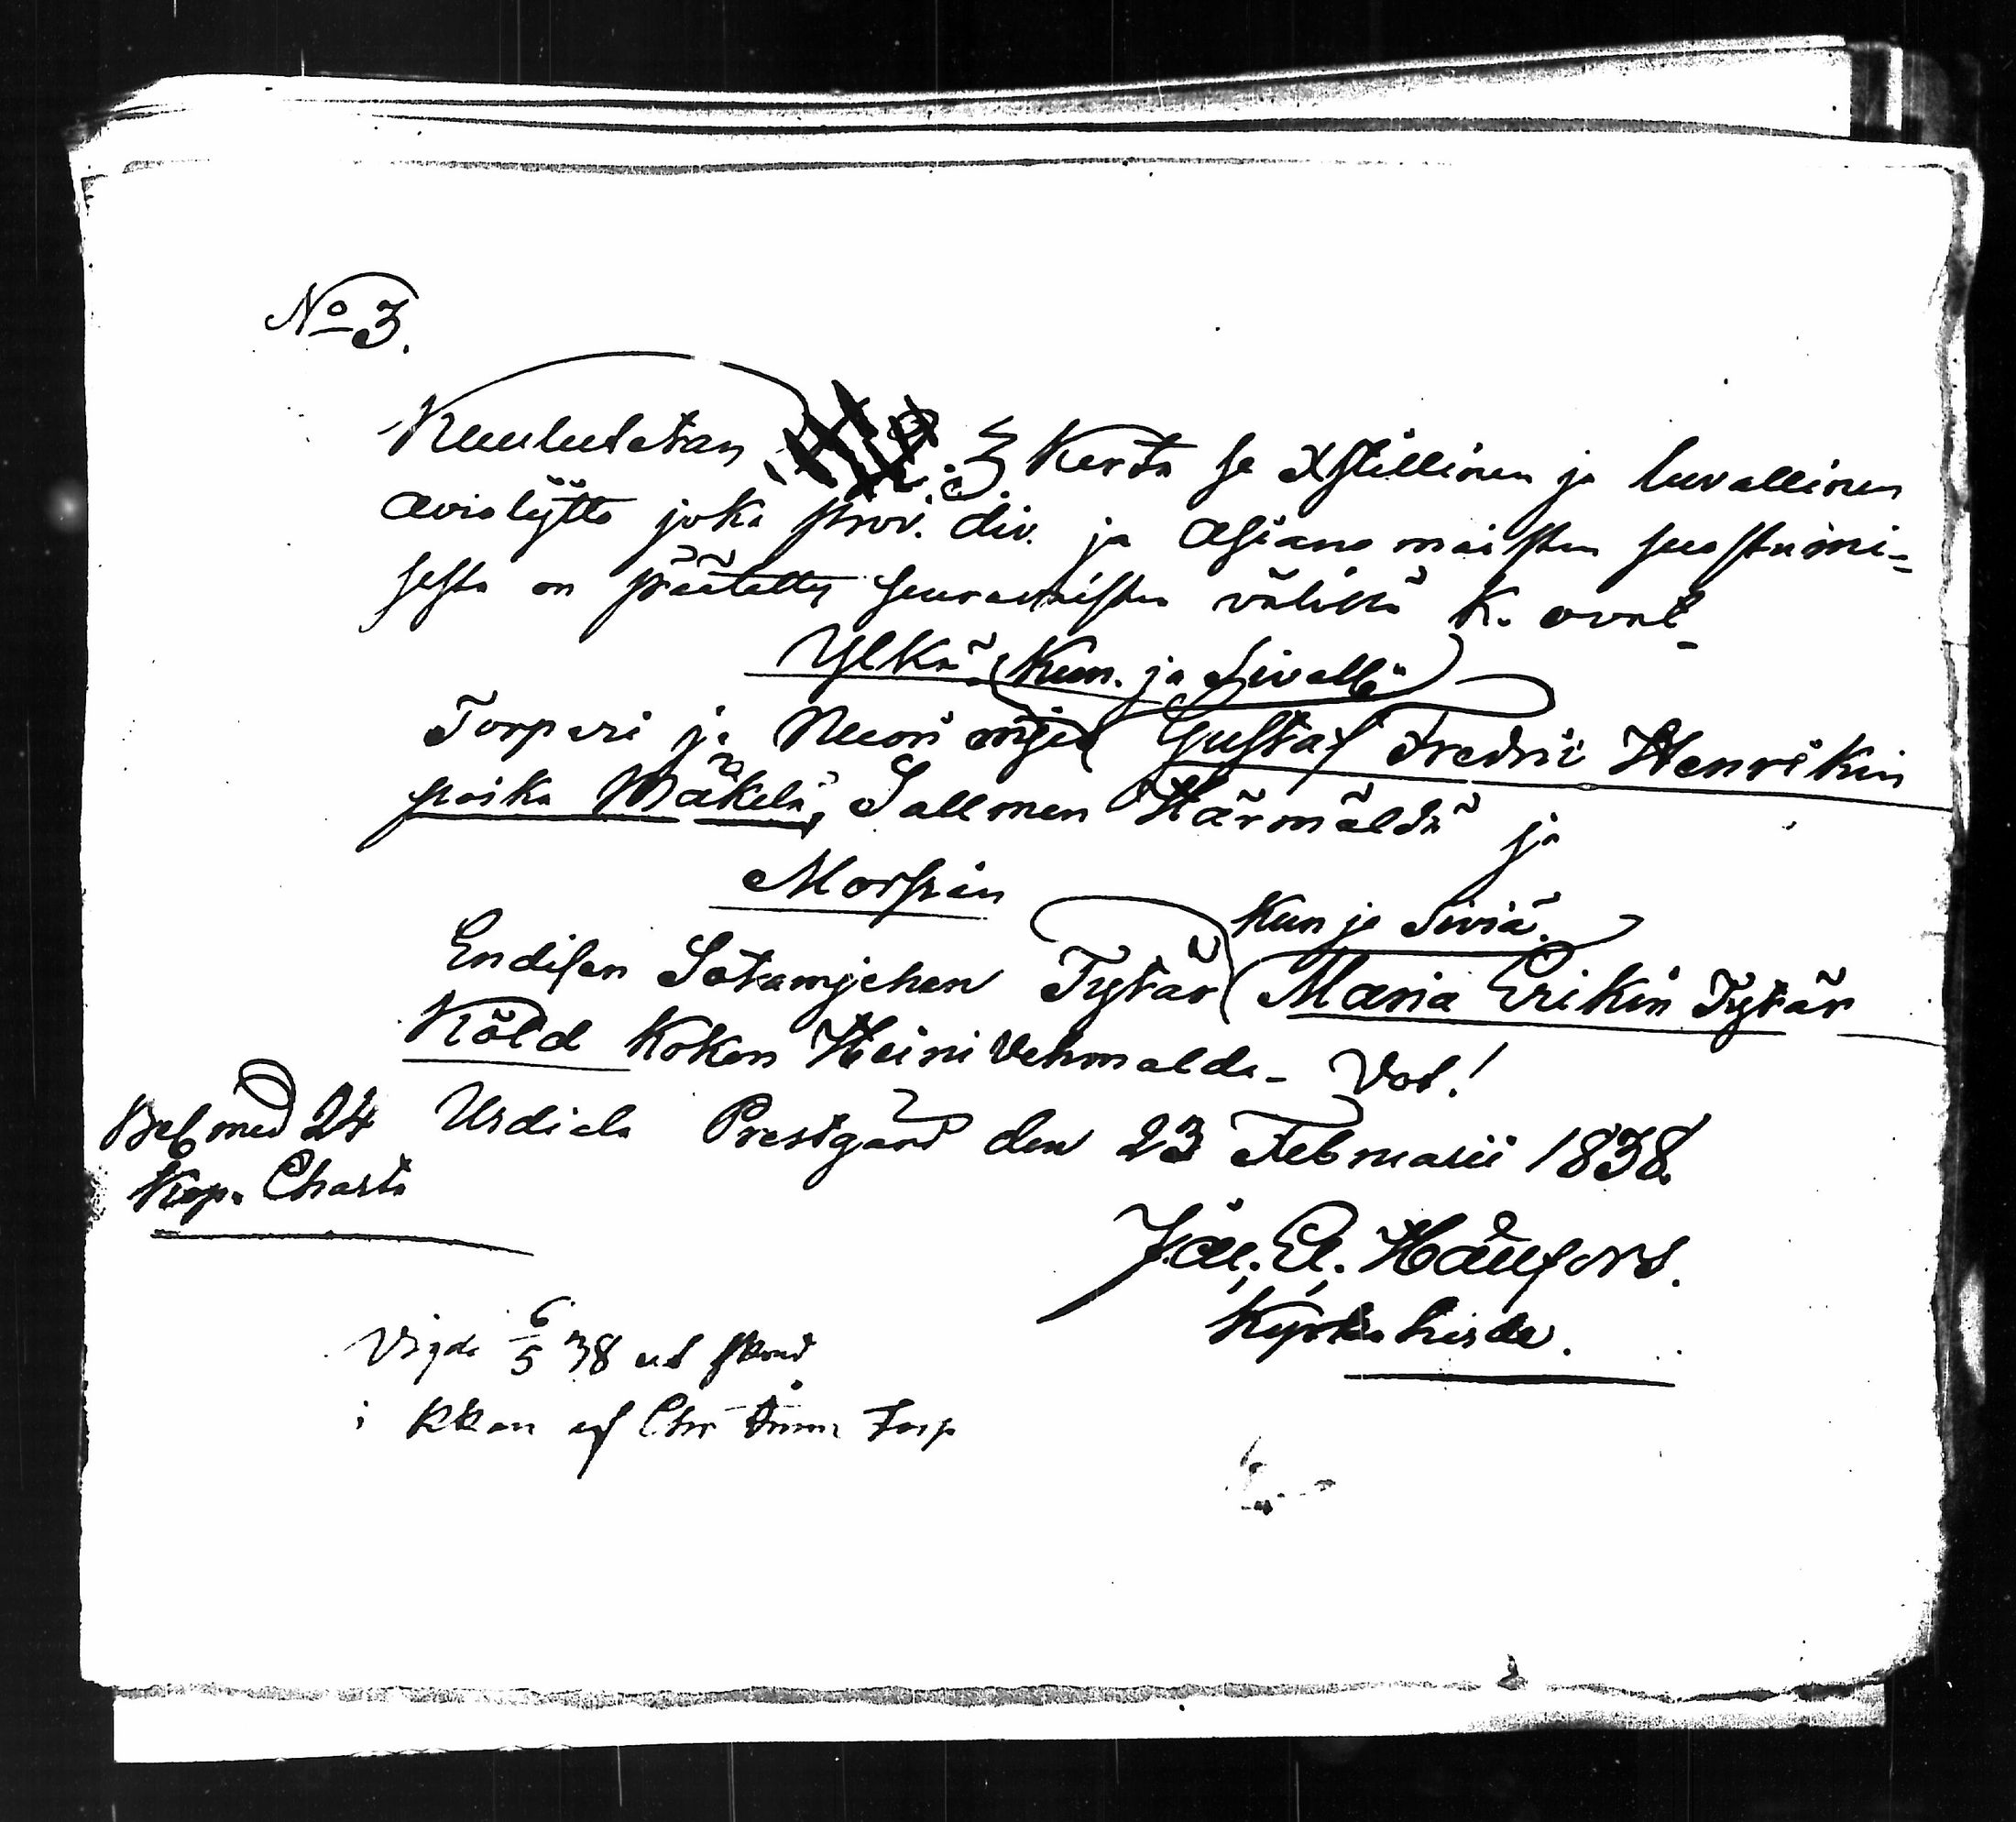 No 3.
Kuulutetan 3 Kerta se Xstillinen ja luvallinen
Avioliitto joka prov. div. ja Asianomaisten suostumi-
sesta on päätetty seuravaisten välillä K. ovat
Ylkä Kun. ja Sivallä
Torpari ja Nuori mjes Gustaf Fredric Henrikin
poika Mäkelä, Sallmen Härmäldä ja
Morsian
Kun ja Siviä.
Endisen Sotamjehen Tytär Maria Erikin Tytär
Köld Koken Heini Vehmalda - Vot!
Bel med 24 Urdiala Prestgård den 23 Februarii 1838.
Kop. Charta
El. Hällfors.
Kyrko herde.
Vigde 6/5 38
i Kkan af